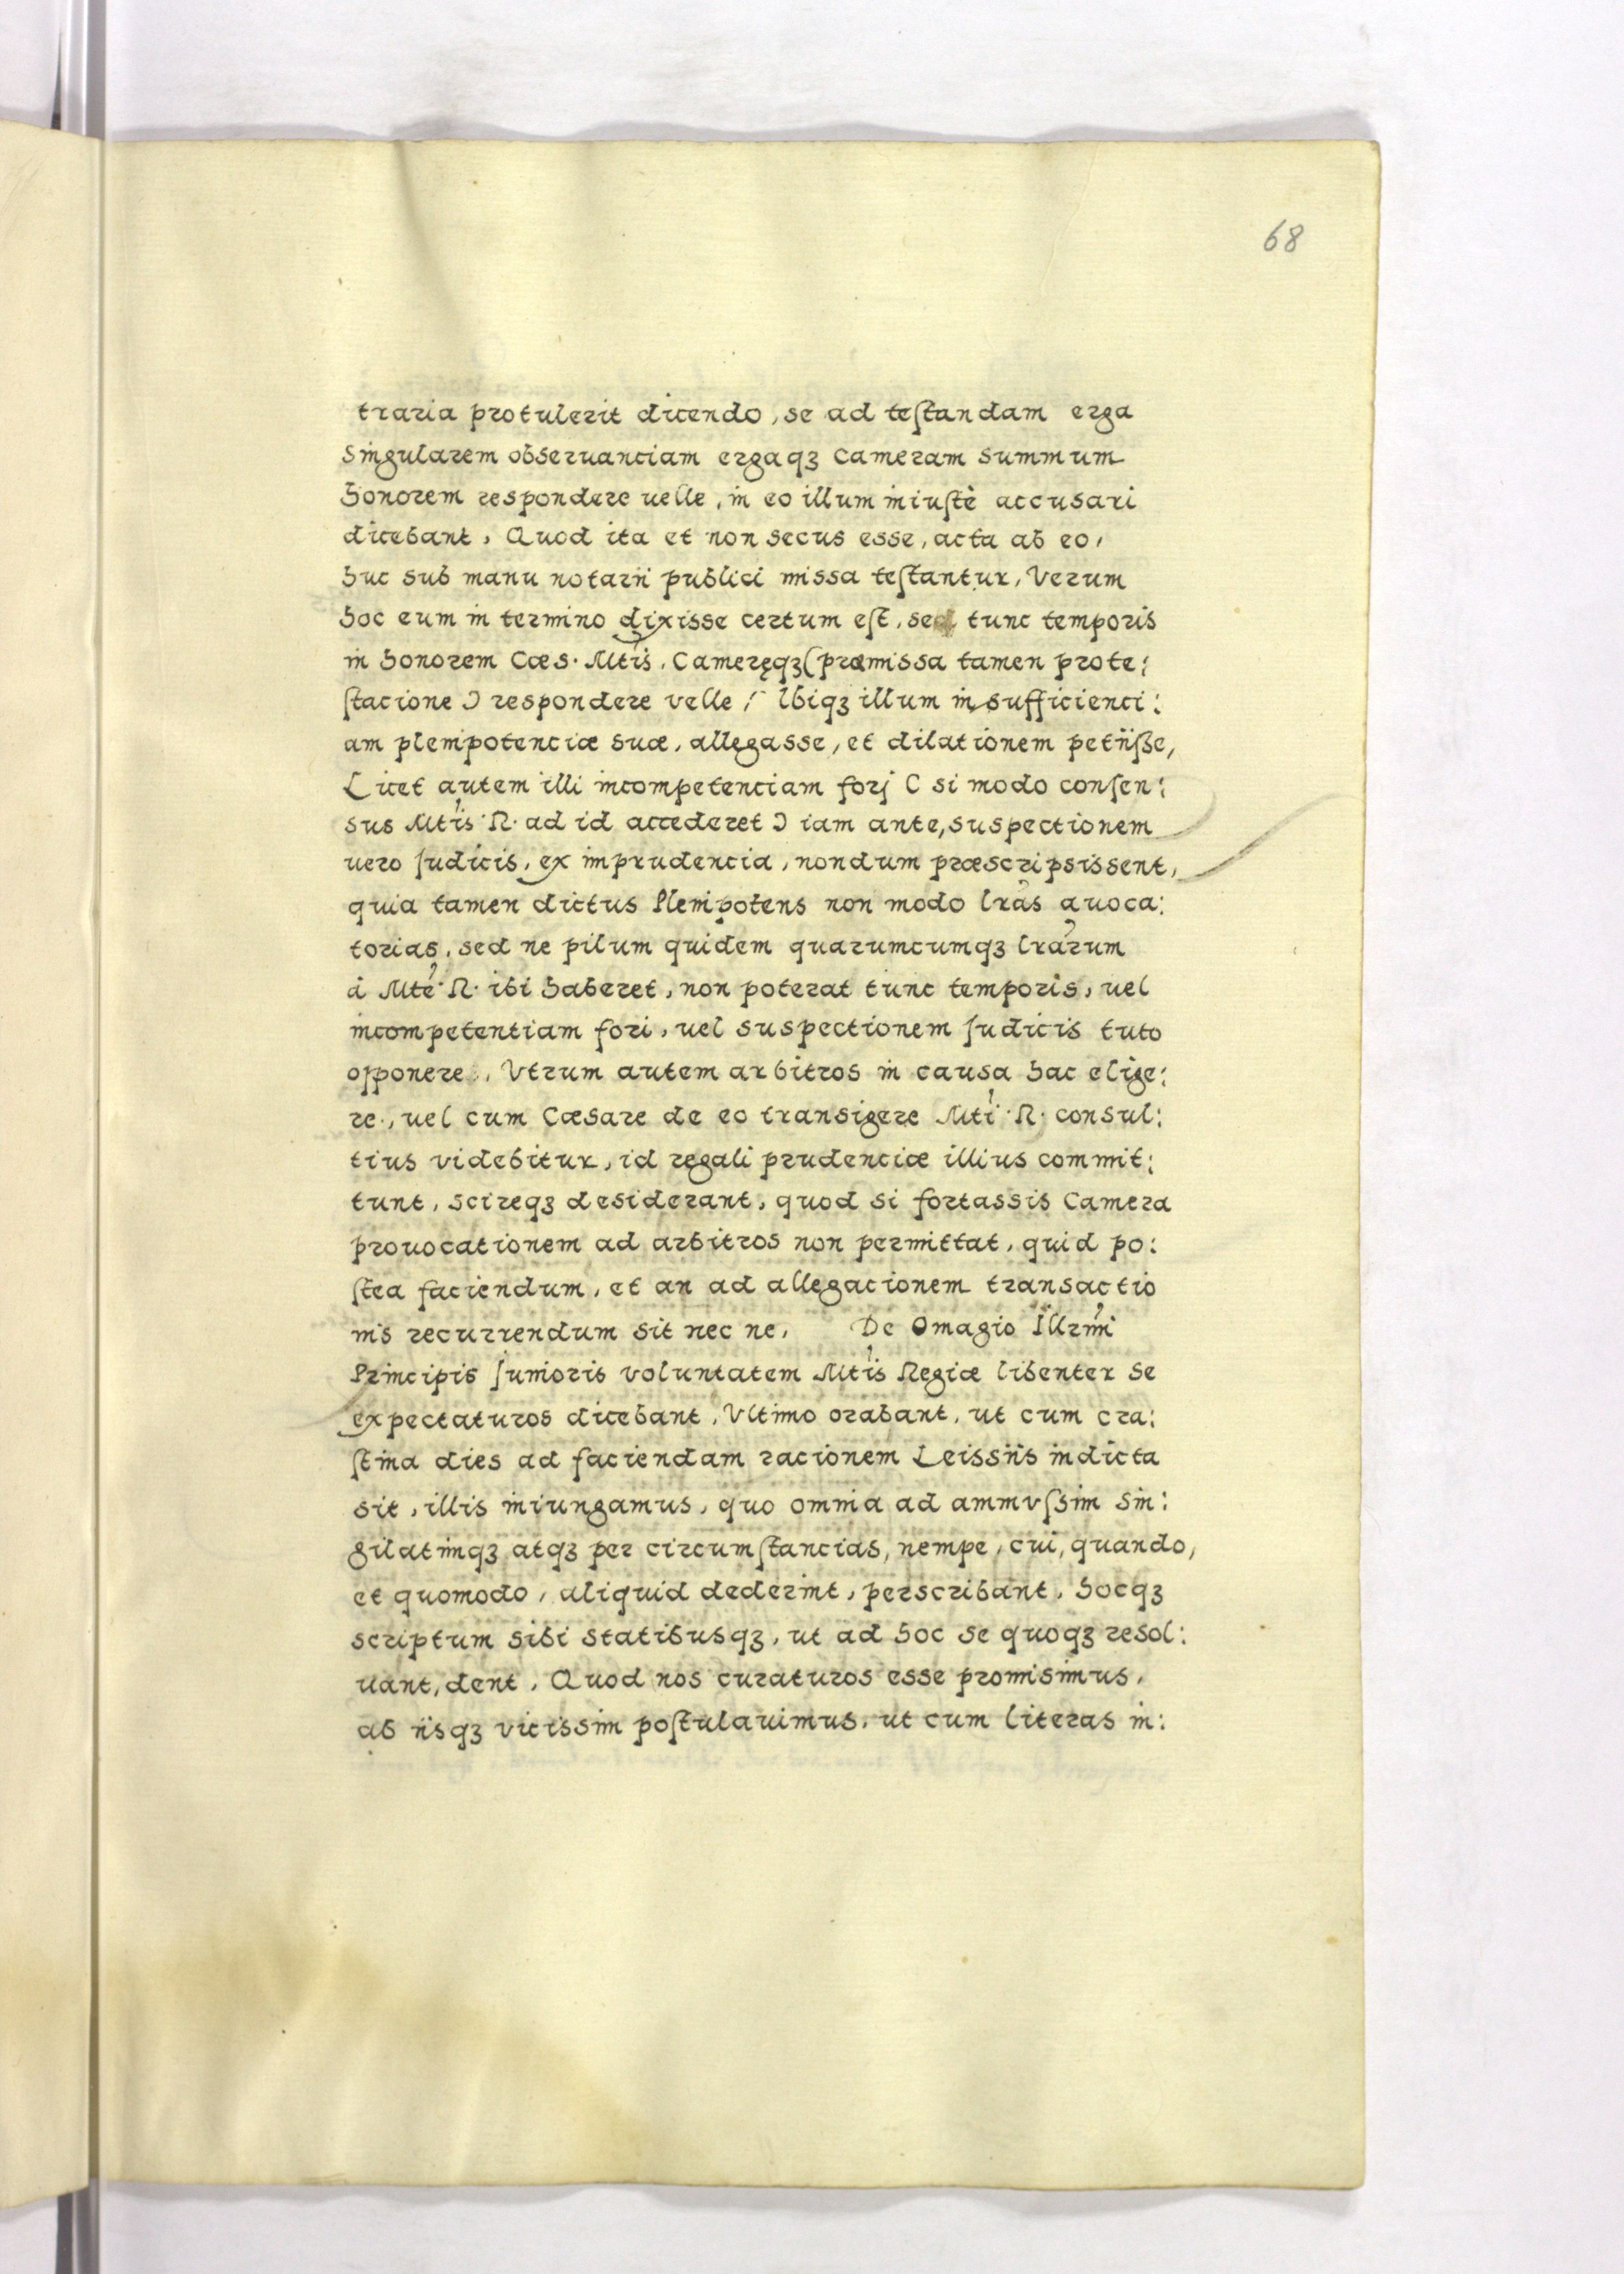 68
traria protulerit dicendo, se ad testandam erga
singularem obseruanciam ergaqȝ Cameram summum
honorem respondere uelle, in eo illum iniustè accusari
dicebant, Quod ita et non secus esse, acta ab eo,
huc sub manu notarii publici missa testantur, Verum
hoc eum in termino dixisse certum est, sed tunc temporis
in honorem Cæs. Mtis. Cameręqȝ (præmissa tamen prote:
stacione ) respondere velle, Ibiqȝ illum insufficienci:
am plenipotenciæ suæ, allegasse, et dilationem petiisse,
Licet autem illi incompetenciam forj ( si modo consen:
sus Mtis R. ad id accederet ) iam ante, suspectionem
uero Judicis, ex imprudencia, nondum præscripsissent,
quia tamen dictus Plenipotens non modo lras auoca:
torias, sed ne pilum quidem quarumcumqȝ lrarum
à Mte R. ibi haberet, non poterat tunc temporis, uel
incompetentiam fori, uel suspectionem Judicis tuto
opponere, Vtrum autem arbitros in causa hac elige:
re, uel cum Cæsare de eo transigere Mti R. consul:
tius videbitur, id regali prudenciæ illius commit:
tunt, scireqȝ desiderant, quod si fortassis Camera
prouocationem ad arbitros non permittat, quid po:
stea faciendum, et an ad allegacionem transactio
nis recurrendum sit nec ne, De Omagio Illrmi
Principis Junioris voluntatem Mtis Regiæ libenter se
expectaturos dicebant, Vltimo orabant, ut cum cra:
stina dies ad faciendam racionem Leissiis indicta
sit, illis iniungamus, quo omnia ad ammvssim sin:
gilatimqȝ atqȝ per circumstancias, nempe, cui, quando,
et quomodo, aliquid dederint, perscribant, hocqȝ
scriptum sibi statibusqȝ, ut ad hoc se quoqȝ resol:
uant, dent, Quod nos curaturos esse promisimus,
ab iisqȝ vicissim postulauimus, ut cum literas in: